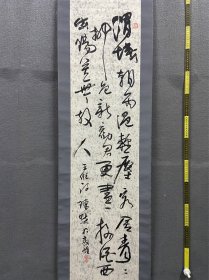 渭城朝雨浥輕塵客舍青〻
柳色新勸君更盡一杯酒西
出陽關無故人王維詩